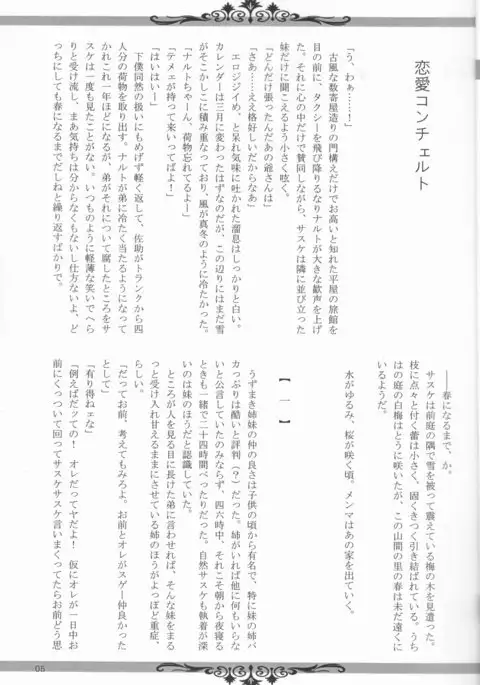 恋愛コンチェルト
「う、わぁ……！」
古風な数寄屋造りの門構えだけでお高いと知れた平屋の旅館を
目の前に、タクシーを飛び降りるなりナルトが大きな歓声を上げ
た。それに心の中だけで賛同しながら、サスケは隣に並び立った
妹だけに聞こえるよう小さく呟く。
「どんだけ張ったんだあの爺さんは」
「さあ……ええ格好しいだからなあ」
エロジジイめ、と呆れ気味に吐かれた溜息はしっかりと白い。
カレンダーは三月に変わったはずなのだが、この辺りにはまだ雪
がそこかしこに積み重なっており、風が真冬のように冷たかった。
「ナルトちゃーん、荷物忘れてるよー」
「テメェが持って来いってばよ！」
「はいはいー」
下僕同然の扱いにもめげず軽く返して、佐助がトランクから四
人分の荷物を取り出す。ナルトが弟に冷たく当たるようになって
かれこれ一年ほどになるが、弟がそれについて腐したところをサ
スケは一度も見たことがない。いつものように軽薄な笑いでへら
りと受け流し、まあ気持ちは分からなくもないし仕方ないよ、ど
っちにしても春になるまでだしねと繰り返すばかりで。
――春になるまで、か。
サスケは前庭の隅で雪を被って震えている梅の木を見遣った。
枝に点々と付く蕾は小さく、固くきつく引き結ばれている。うち
はの庭の白梅はとうに咲いたが、この山間の里の春は未だ遠くに
いるようだ。
水がゆるみ、桜が咲く頃。メンマはあの家を出ていく。
【 一 】
うずまき姉妹の仲の良さは子供の頃から有名で、特に妹の姉バ
カっぷりは酷いと評判（？）だった。姉がいれば他に何もいらな
いと公言していたのみならず、四六時中、それこそ朝から夜寝る
ときも一緒で二十四時間べったりだった。自然サスケも執着が深
いのは妹のほうだと認識していた。
ところが人を見る目に長けた弟に言わせれば、そんな妹をまる
っと受け入れ甘えるままにさせている姉のほうがよっぽど重症、
らしい。
「だってお前、考えてもみろよ。お前とオレがスゲー仲良かった
として」
「有り得ねェな」
「例えばだッての！　オレだってヤだよ！　仮にオレが一日中お
前にくっついて回ってサスケサスケ言いまくってたらお前どう思
05